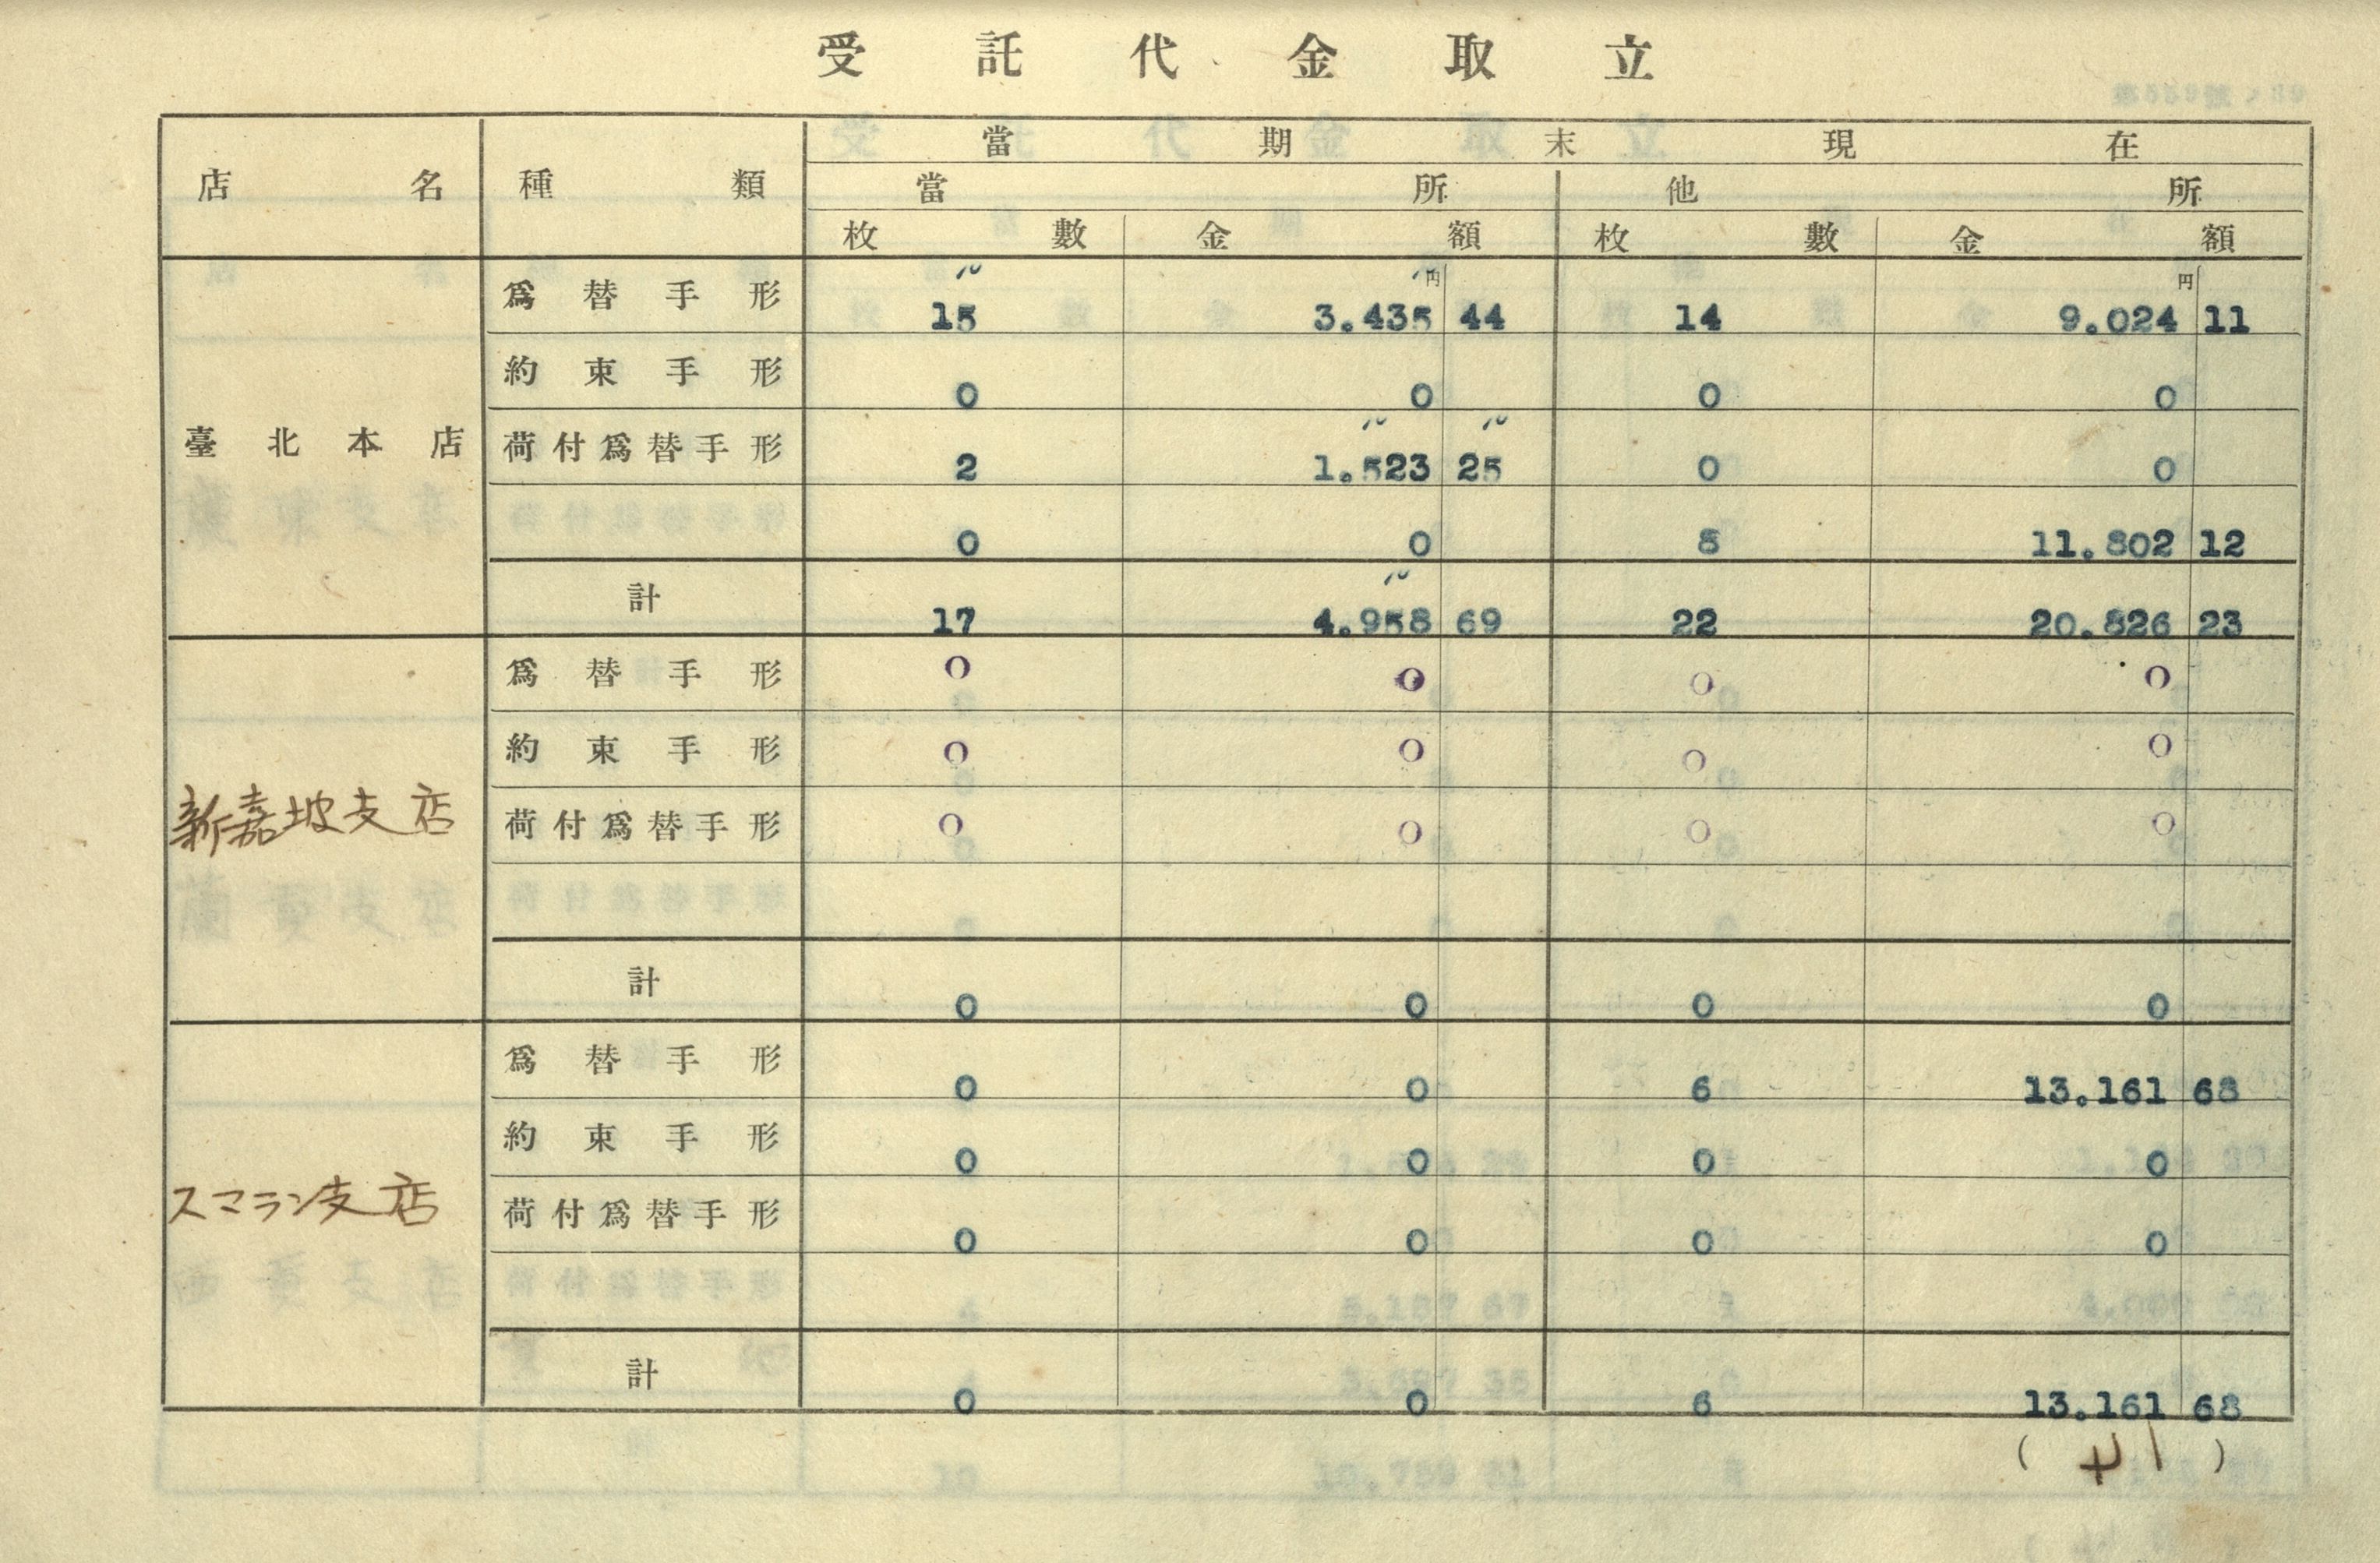 受託代金取立
店名 種類 當期末現在
當所 他所
枚數 金額 枚數 金額
円 円
爲替手形 15 3.435 44 14 9.024 11
約束手形 0 0 0 0
臺北本店 荷付爲替手形 2 1.523 25 0 0
0 0 8 11.802 12
計 17 4.958 69 22 20.826 23
爲替手形 0 0 0 0
約束手形 0 0 0 0
新嘉坡支店 荷付爲替手形 0 0 0 0
計 0 0 0 0
爲替手形 0 0 6 13.161 68
約束手形 0 0 0 0
スマラン支店 荷付爲替手形 0 0 0 0
計 0 0 6 13.161 68